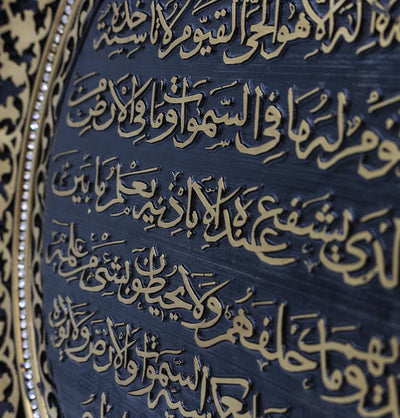 إله إلا هو الحي القيوم لا تأخذه
نوم له ما في السموات وما في الأرض
الذي يشفع عنده إلا بإذنه يعلم ما بين
أيديهم وما خلفهم ولا يحيطون بشيء من علمه
كرسيه السموات والأرض ولا يؤده